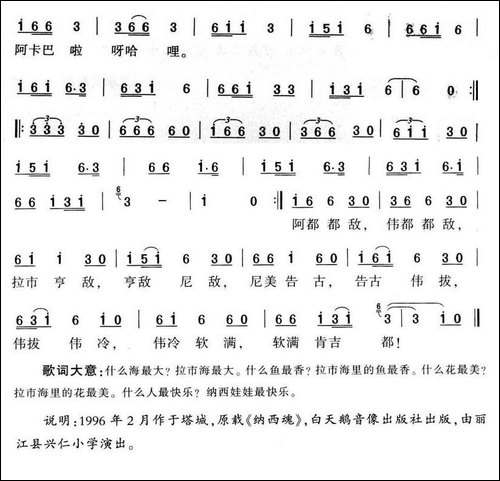 i 6 6 3 | 3 6 6 3 | 6 i i 3 | i 5 i 6 | 6 6 i 6 |
阿卡巴 啦 呀哈 哩。
i 6 i 6·3 | 6 3 i 6 | 6 6 3 3 | i 3 i 6 | 6 0 :||
||: 3 3 3 3 0 | 6 6 6 6 0 | i 6 6 3 0 | 3 6 6 3 0 | 6 i i 3 0 |
i 5 i 6·3 | 6 6 i·6 | i 5 i 6·3 | 6 3 i 6·i |
6 6 i 3 i | 6 3 – | i 0 :|| i 6 6 3 0 | 3 6 6 3 0 |
阿都 都 敌, 伟都 都 敌,
6 i i 3 0 | i 5 i 6 3 0 | 6 6 i 6 | i 6 i 6 3 0 |
拉市 亨 敌, 亨敌 尼 敌, 尼美 告 古, 告古 伟 拔,
6 3 i 6 i 0 | 6 i 6 3 0 | 6 6 i 3 i | 6 3 3 i 0 ||
伟拔 伟 冷, 伟冷 软 满, 软满 肯吉 都!
歌词大意:什么海最大?拉市海最大。什么鱼最香?拉市海里的鱼最香。什么花最美?
拉市海里的花最美。什么人最快乐?纳西娃娃最快乐。
说明:1996年2月作于塔城,原载《纳西魂》,白天鹅音像出版社出版,由丽
江县兴仁小学演出。